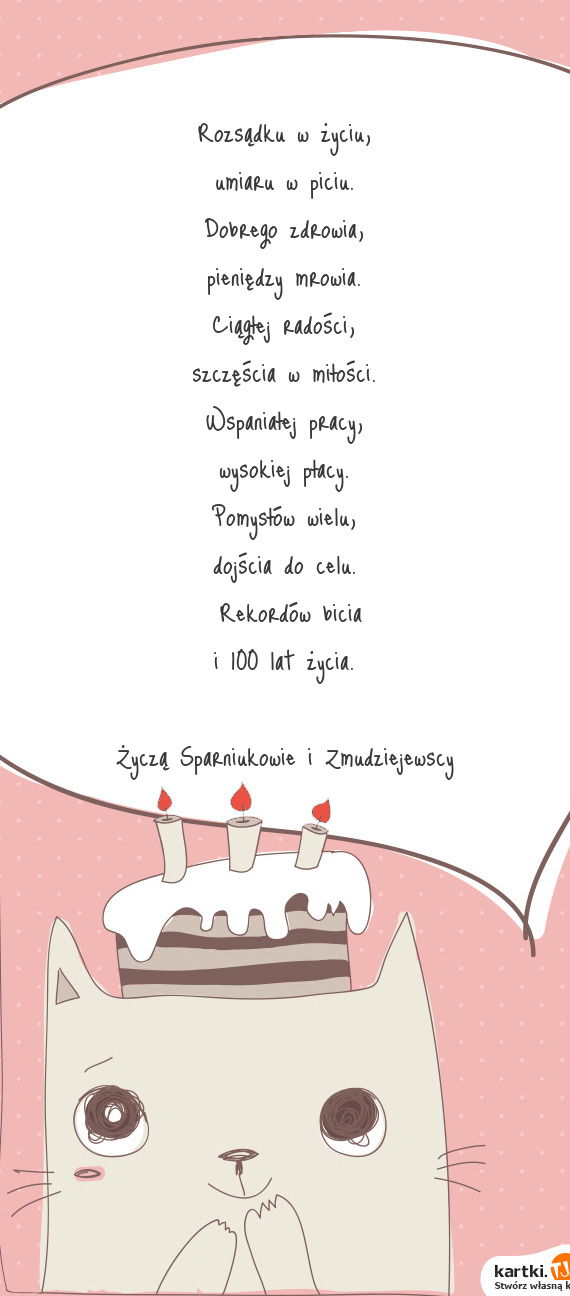 Rozsądku w życiu,
umiaru w piciu.
Dobrego zdrowia,
pieniędzy mrowia.
Ciągłej radości,
szczęścia w miłości.
Wspaniałej pracy,
wysokiej płacy.
Pomysłów wielu,
dojścia do celu.
Rekordów bicia
i 100 lat życia.
Życzą Sparniukowie i Zmudziejewscy
kartki.TJ
Stwórz własną k